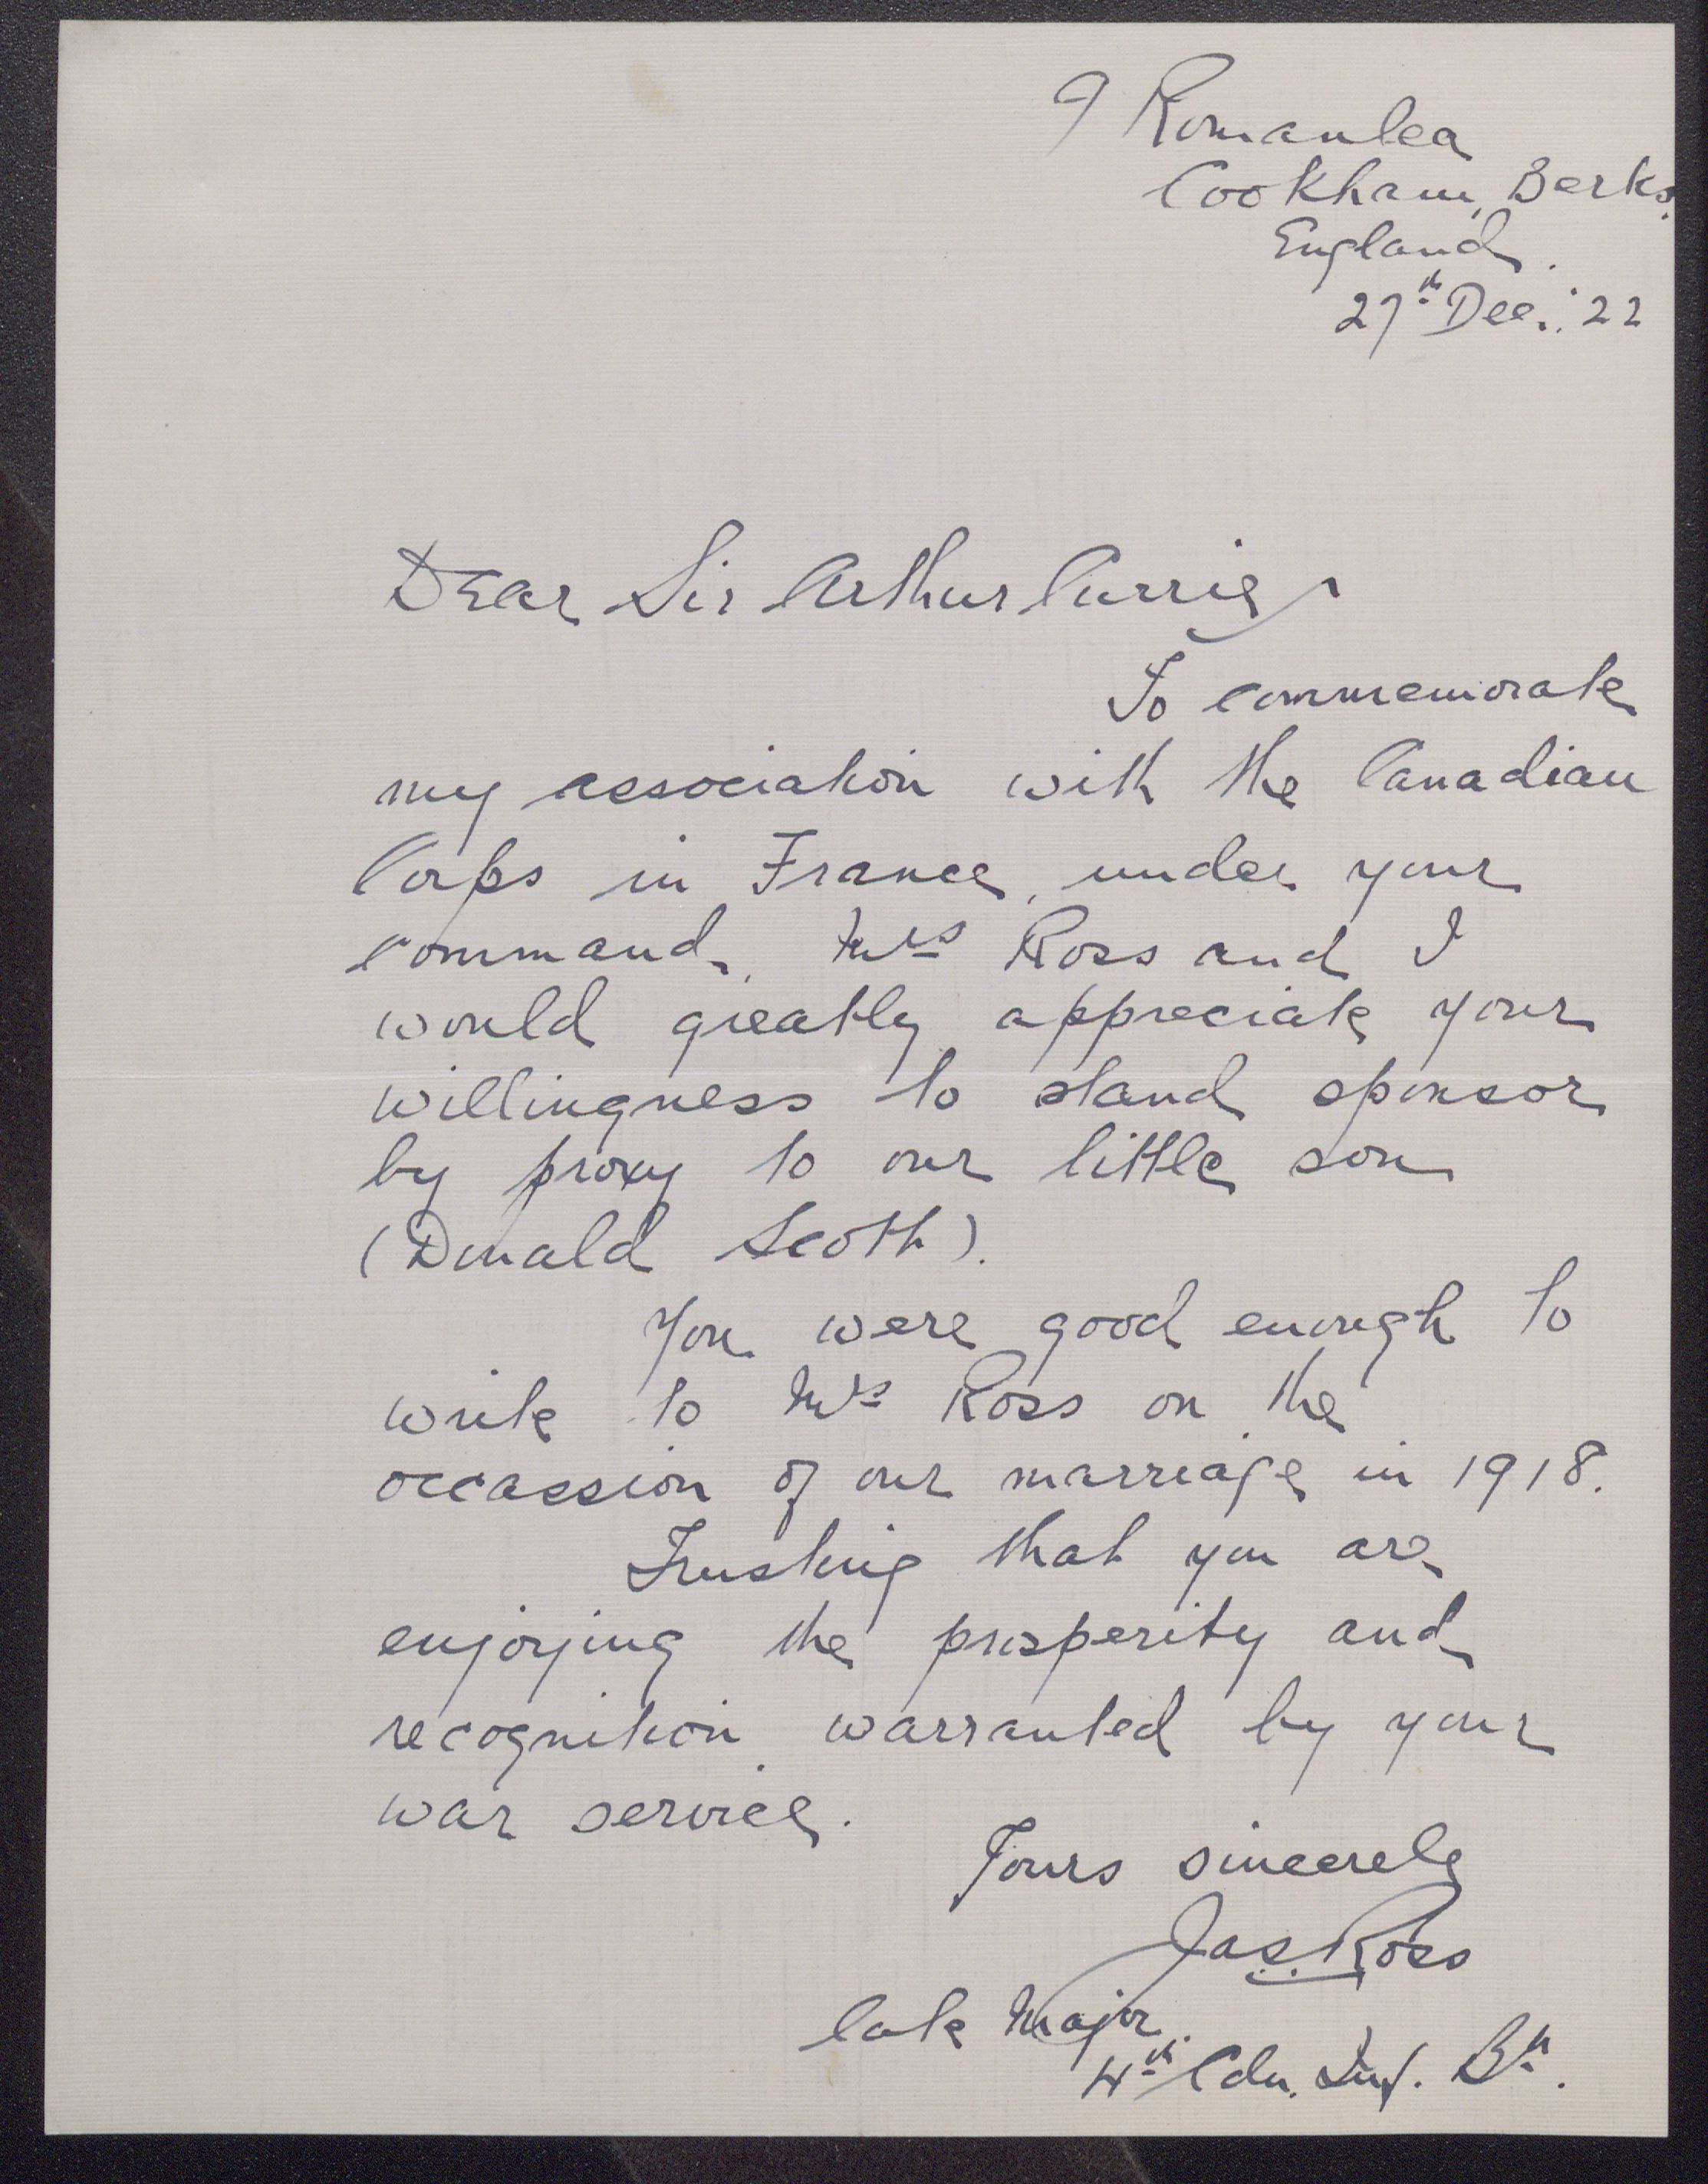 9 Romanlea
Cookham, Berks.
England.
27th Dec. '22
Dear Sir Arthur Currie,
To commemorate
my association with the Canadian
Corps in France, under your
command, Mrs Ross and I
would greatly appreciate your
willingness to stand sponsor
by proxy to our little son
(Donald Scoth).
You were good enough to
write to Mrs Ross on the
occassion of our marriage in 1918.
Trusting that you are
enjoying the prosperity and
recognition warranted by your
war service.
Yours sincerely
Jas. Ross
late Major.
4th Cdn. Inf. Bn.